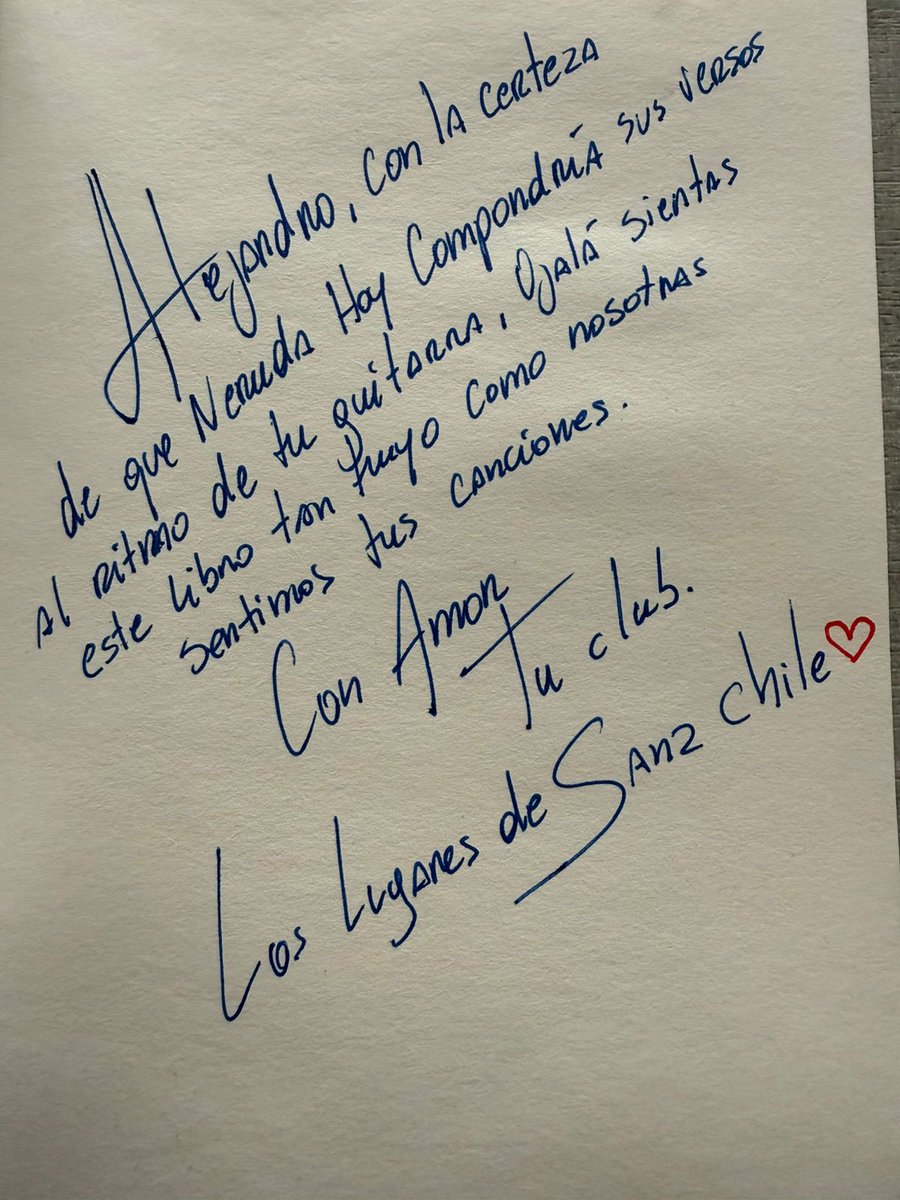 Alejandro, con la certeza
de que Neruda Hoy Compondría sus versos
al ritmo de tu guitarra, Ojalá sientas
este libro tan tuyo como nosotras
sentimos tus canciones.
Con Amor
Tu club.
Los Lugares de Sanz Chile